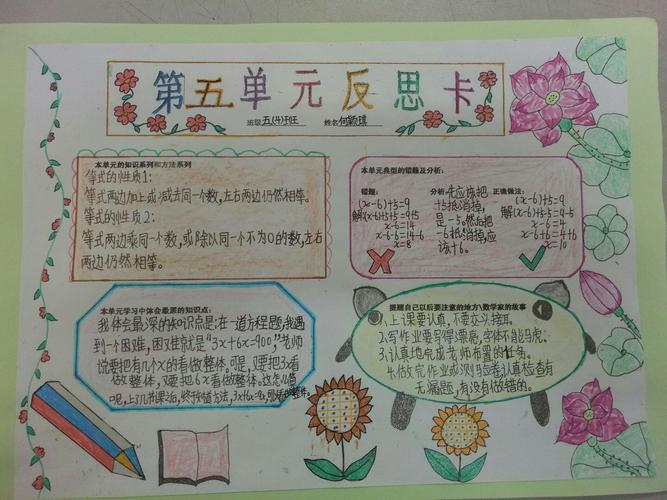 第五单元反思卡
班级 五(4)班 姓名
本单元的知识系列和方法系列
等式的性质1:
等式两边加上或减去同一个数,左右两边仍然相等。
等式的性质2:
等式两边乘同一个数,或除以同一个不为0的数,左右
两边仍然相等。
本单元典型的错题及分析:
错题:
(x-6)+5=9
解(x-6)+5+5=9+5
x-6=14
x-6-6=14-6
x=8
分析:先应该把
+5抵消掉,
是-5。然后把
-6抵消掉,应
该+6。
正确做法:
(x-6)+5=9
解(x-6)+5-5=9-5
x-6=4
x-6+6=4+6
x=10
本单元学习中体会最深的知识点:
我体会最深的知识点是:在一道方程题,我遇
到一个困难,困难就是"3x+6x=900,"老师
说要把有几个x的看做整体。可是,又要把3x看
做整体,又要把6x看做整体。这怎么算
呢,上了几节课之后,终于知道方法,3x+6x=9x,
提醒自己以后要注意的地方\数学家的故事
1、上课要认真,不要交头接耳。
2.写作业要写得漂亮,字体不能马虎。
3.认真地完成老师布置的任务。
4.做完作业或测验卷,认真检查有
无漏题,有没有做错的。